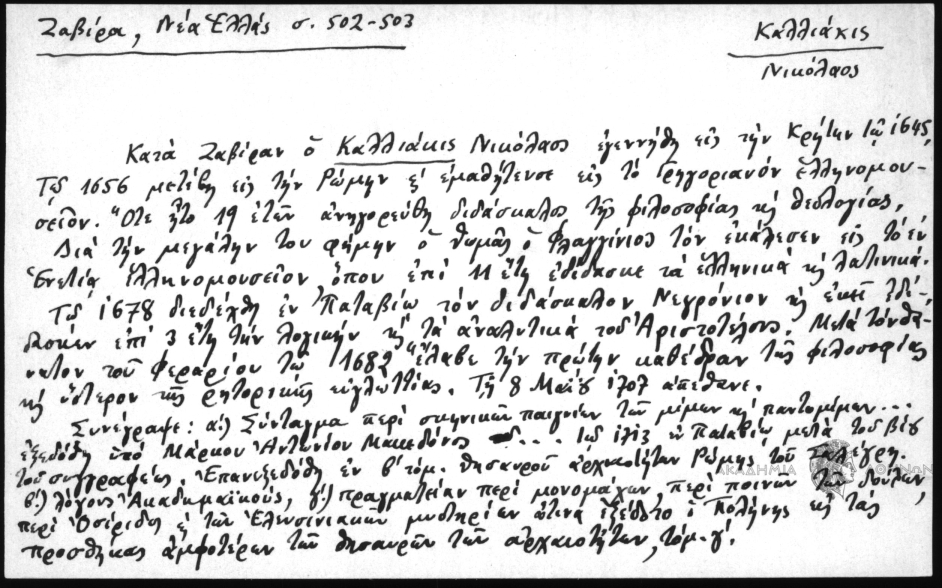 Ζαβίρα, Νέα Ἑλλάς σ. 502-503
Καλλιάκις
Νικόλαος
Κατά Ζαβίραν ὁ Καλλιάκις Νικόλαος ἐγεννήθη εἰς τήν Κρήτην τῷ 1645
Τῷ 1656 μετέβη εἰς τήν Ρώμην ἐμαθήτευσε εἰς τό Γρηγοριανόν Ἑλληνομου-
σεῖον. Ὅτε ἦτο 19 ἐτῶν ἀνηγορεύθη διδάσκαλος τῆς φιλοσοφίας κῃ θεολογίας.
Διά τήν μεγάλην του φήμην ὁ Θωμᾶς ὁ Φλαγγίνιος τόν ἐκάλεσεν εἰς τό ἐν
Ἑνετίᾳ Ἑλληνομουσεῖον, ὅπου ἐπί 11 ἔτη ἐδίδασκε τά ἑλληνικά κῃ λατινικά.
Τῷ 1678 διεδέχθη ἐν Παταβίῳ τόν διδάσκαλον Νεγρόνιον κῃ ἐκεῖ ἐδί-
δασκεν ἐπί 3 ἔτη τήν λογικήν κῃ τά ἀναλυτικά τοῦ Ἀριστοτέλους. Μετά τόν θά-
νατον τοῦ Φεραρίου τῷ 1682 ἔλαβε τήν πρώτην καθέδραν τῆς φιλοσοφίας
κῃ ὕστερον τῆς ρητορικῆς εὐγλωττίας. Τῇ 8 Μαΐου 1707 ἀπέθανε.
Συνέγραψε: α.) Σύνταγμα περί σκηνικῶν παιγνίων τῶν μίμων κῃ παντομίμων...
ἐξεδόθη ὑπό Μάρκου Ἀντωνίου Μακεδόνος ... ἐν Παταβίῳ μετά τοῦ βίου
τοῦ συγγραφέως. Ἐπανεξεδόθη ἐν β' τόμ. θησαυροῦ ἀρχαιοτήτων Ρώμης τοῦ Σαλέγρη.
β.) λόγους Ἀκαδημαϊκούς, γ.) πραγματείαν περί μονομάχων, περί ποινῶν τῶν δούλων,
περί Ὀσίριδος τῶν Ἐλευσινιακῶν μυστηρίων ἅτινα ἐξέδοτο ὁ Πολένης εἰς τάς
προσθήκας ἀμφοτέρων τῶν θησαυρῶν τῶν ἀρχαιοτήτων, τόμ. γ'.
ΑΚΑΔΗΜΙΑ ΑΘΗΝΩΝ